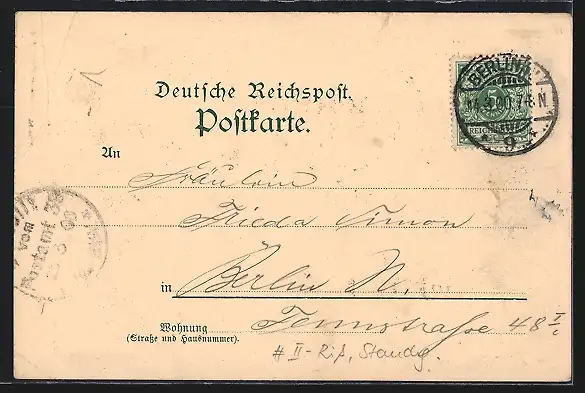 Deutsche Reichspost.
Postkarte.
BERLIN
.3.00.7-8N.
REICHS
g
An
Fräulein
Frieda Simon
in Berlin N.
Wohnung
(Straße und Hausnummer).
Fennstraße 48 I
vom
Postamt
3 00
# II-Rif, Standg.